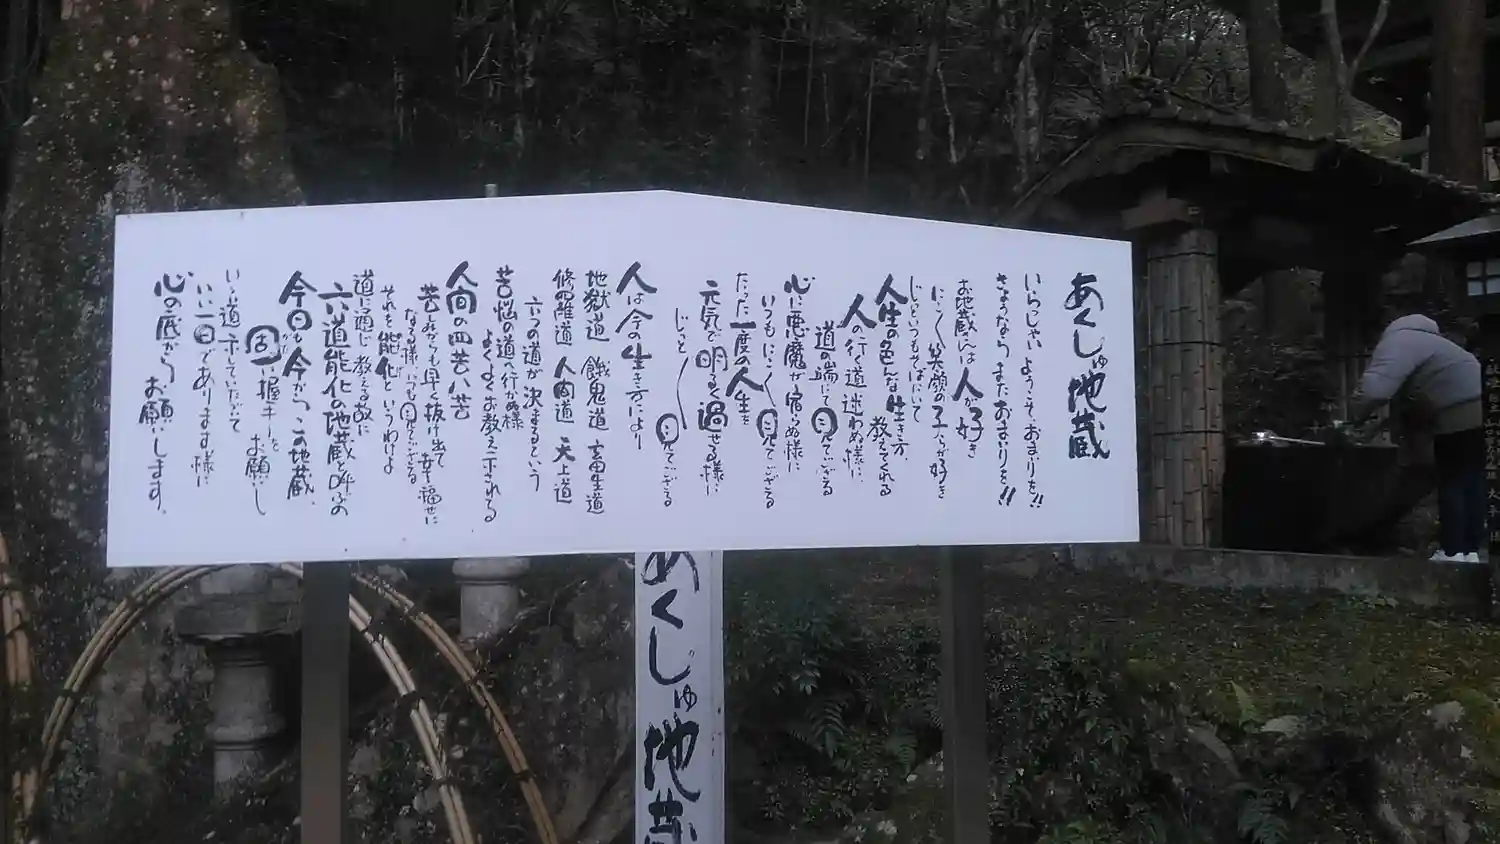 あくしゅ地蔵
いらっしゃい ようこそ、おまいりを!!
きょうなら またおまいりを!!
お地蔵さんは人が好き
にこにこ笑顔の子らが好き
じっといつもそばにいて
人生の色んな生き方
教えてくれる
人の行く道迷わぬ様に
道の端にて見てござる
心に悪魔が宿らぬ様に
いつもにこにこ見てござる
たった一度の人生を
元気で明るく過せる様に
じっと 見てござる
人は今の生き方により
地獄道 餓鬼道 畜生道
修羅道 人間道 天上道
六つの道が決まるという
苦悩の道へ行かぬ様
よくよくお教え示されてる
人間の四苦八苦
苦しみからも早く抜け出て幸福せに
なる様いつも見てござる
それを能化というわけよ
道に通じ教える故に
六道能化の地蔵と呼ぶの
今日も今からこの地蔵
固い握手をお願いし
いい道示していただいて
いい一日であります様に
心の底からお願いします。
あくしゅ地蔵